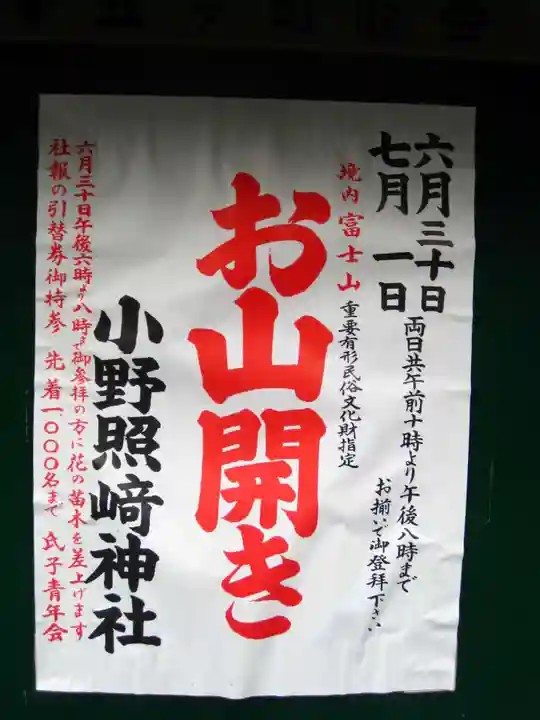 六月三十日
七月一日
両日共午前十時より午後八時まで
お揃いで御登拝下さい
境内富士山
重要有形民俗文化財指定
お山開き
小野照﨑神社
六月三十日午後六時より八時まで御参拝の方に花の苗木を差上げます
社報の引替券御持参 先着一、〇〇〇名まで 氏子青年会